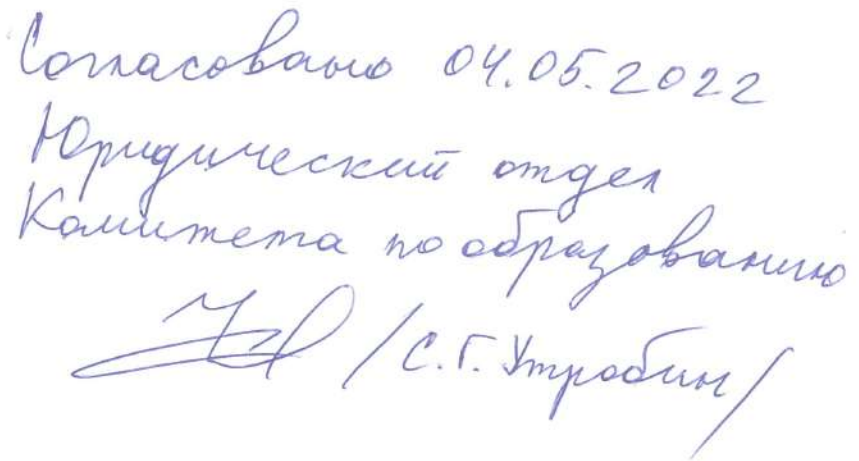 Согласовано 04.05.2022
Юридический отдел
Комитета по образованию
/С.Г. Утробин/